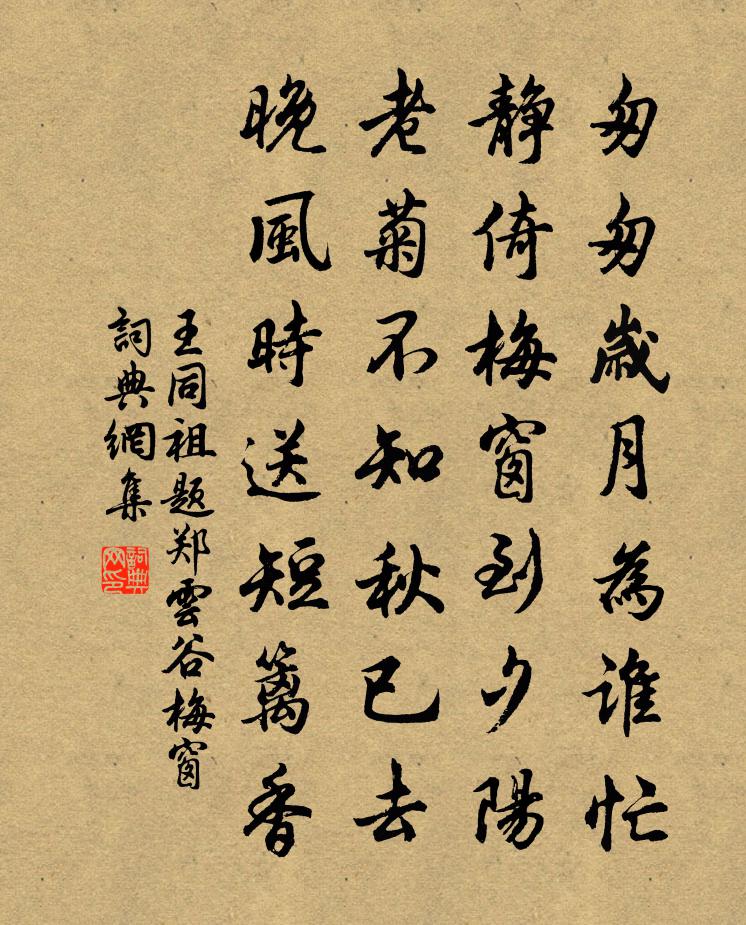 匆匆歲月為誰忙
静倚梅窗到夕陽
老菊不知秋已去
晚風時送短籬香
王同祖题郑雲谷梅窗
詞典網集
詞典网印